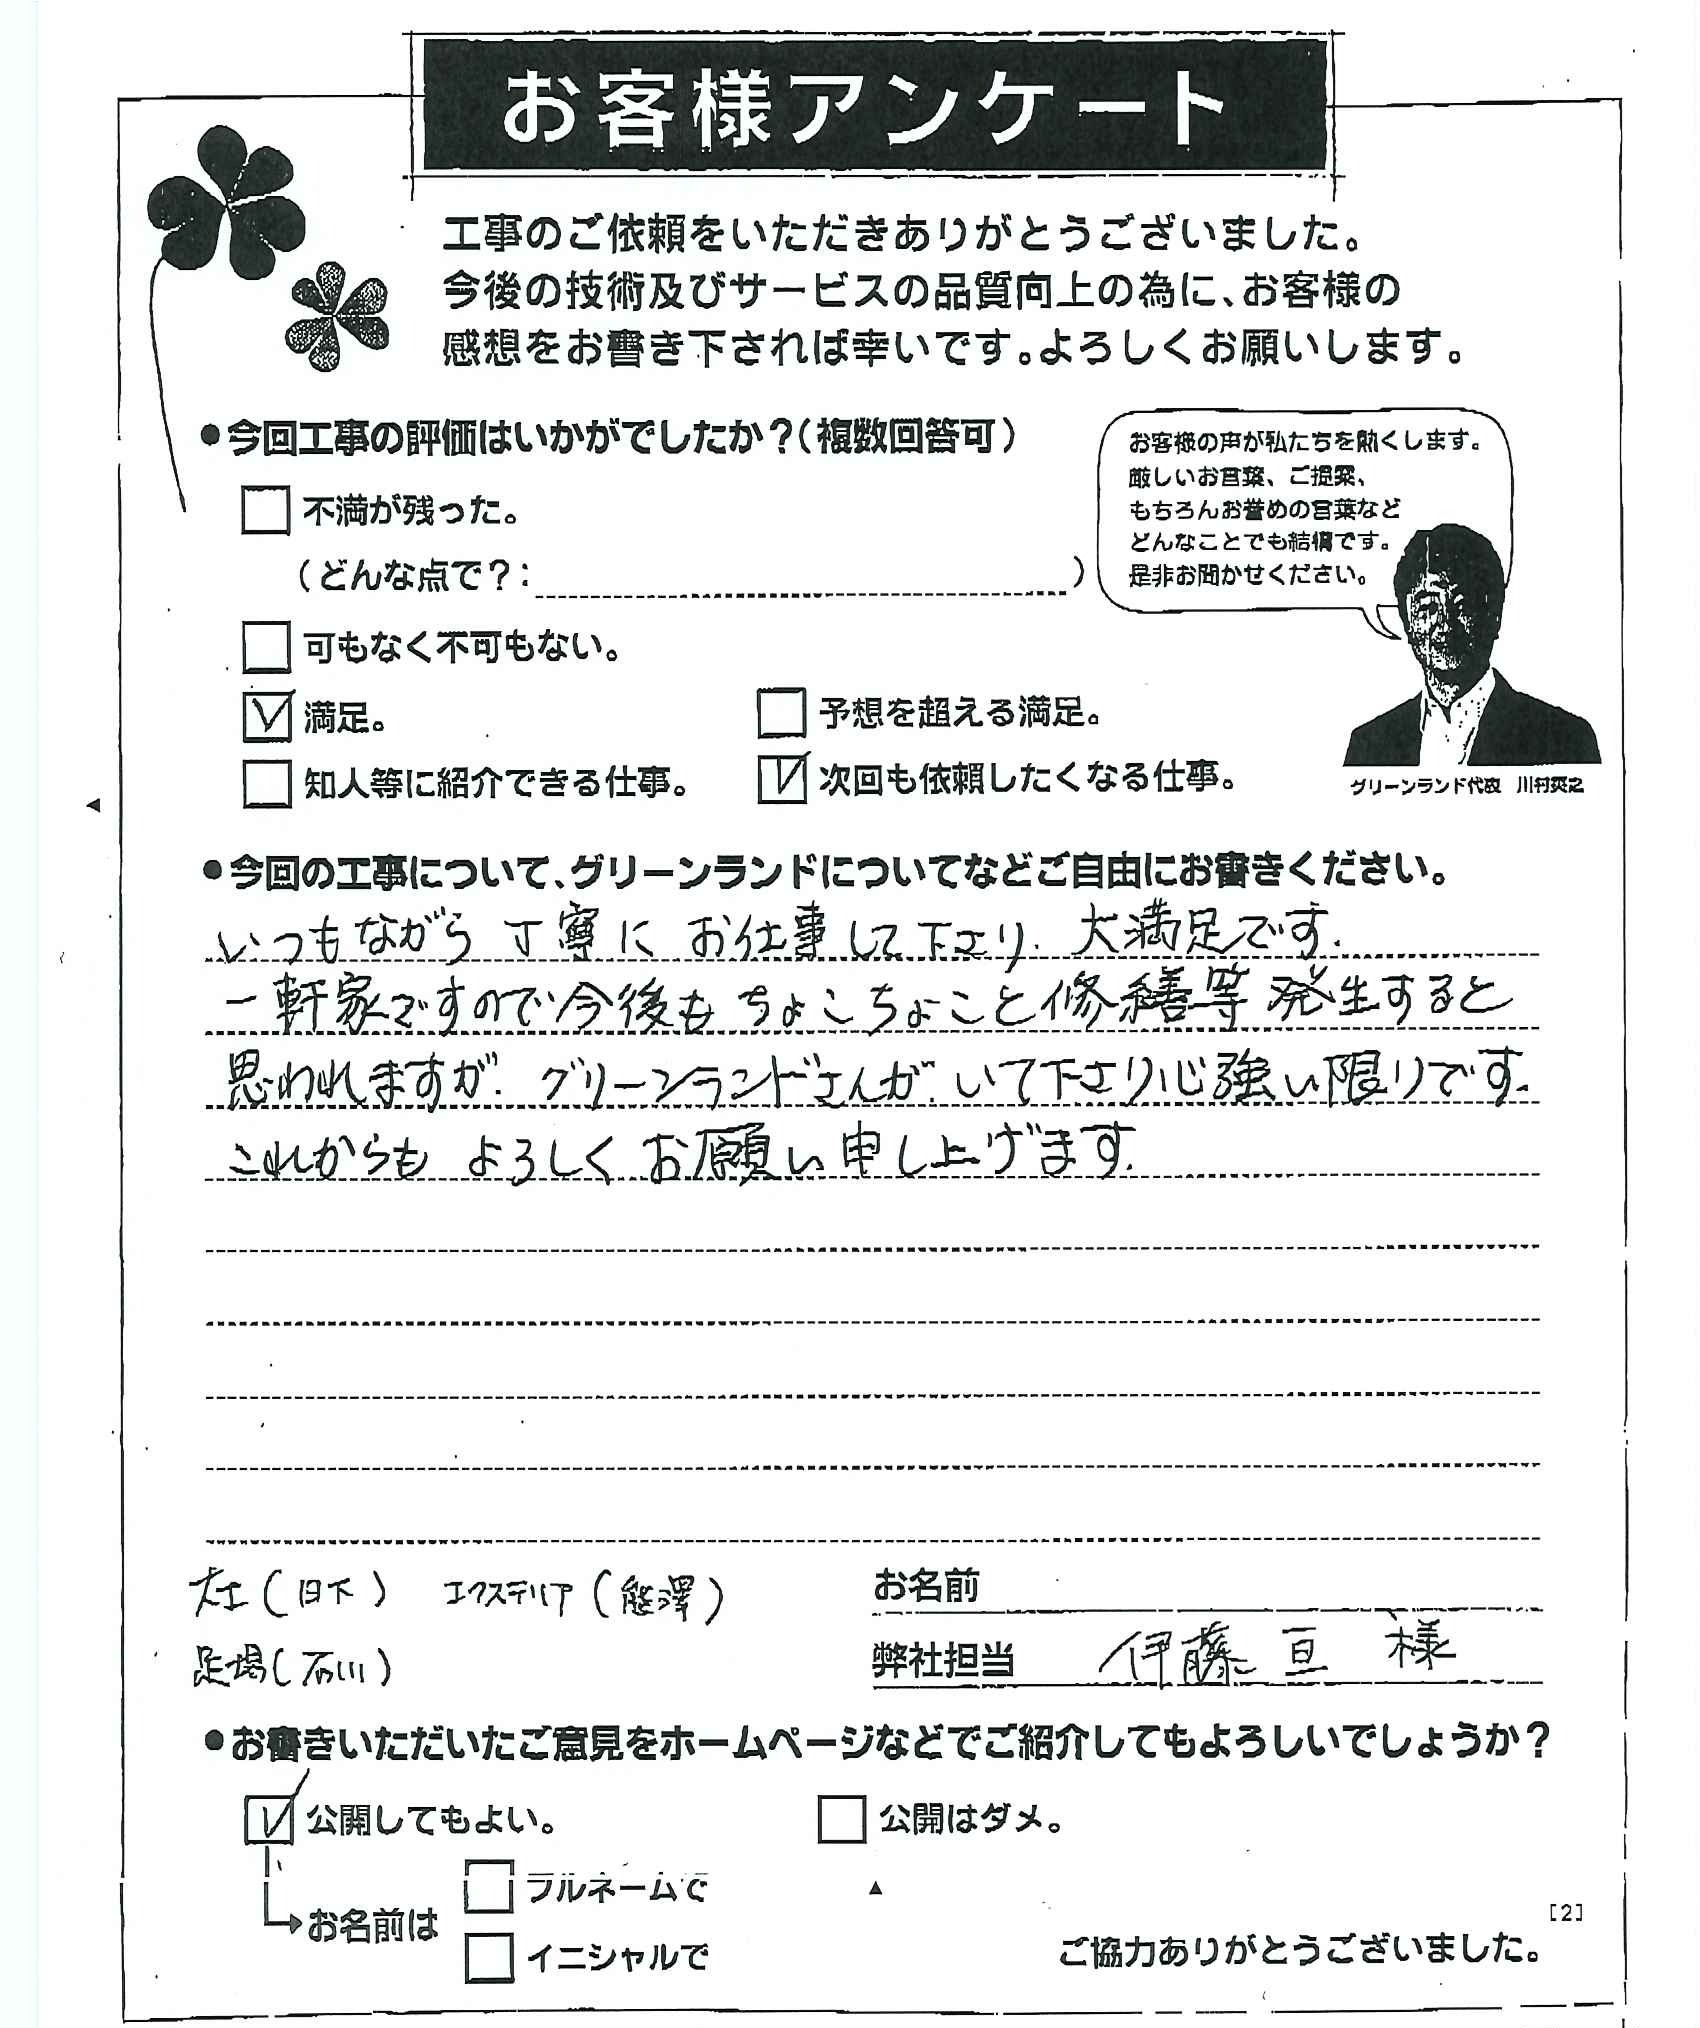 お客様アンケート
工事のご依頼をいただきありがとうございました。
今後の技術及びサービスの品質向上の為に、お客様の
感想をお書き下されば幸いです。よろしくお願いします。
●今回工事の評価はいかがでしたか?(複数回答可)
不満が残った。
(どんな点で?: )
可もなく不可もない。
満足。
予想を超える満足。
知人等に紹介できる仕事。
次回も依頼したくなる仕事。
お客様の声が私たちを熱くします。
厳しいお言葉、ご提案、
もちろんお誉めの言葉など
どんなことでも結構です。
是非お聞かせください。
グリーンランド代表 川村英之
●今回の工事について、グリーンランドについてなどご自由にお書きください。
いつもながら 丁寧に お仕事して下さり、大満足です。
一軒家ですので今後も ちょこちょこと修繕等発生すると
思われますが、グリーンランドさんが、いて下さり心強い限りです。
これからも よろしく お願い申し上げます。
大工(日下) エクステリア(熊澤)
足場(石川)
お名前
弊社担当 伊藤 亘 様
●お書きいただいたご意見をホームページなどでご紹介してもよろしいでしょうか?
公開してもよい。
公開はダメ。
お名前は
フルネームで
イニシャルで
[2]
ご協力ありがとうございました。